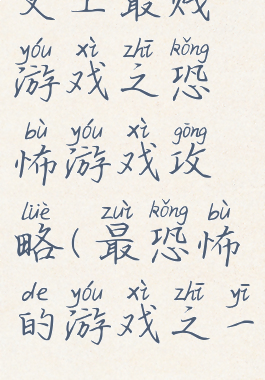 yóu xì zhī kǒng
游戏之恐
bù yóu xì gōng
怖游戏攻
lüè zuì kǒng bù
略(最恐怖
de yóu xì zhī yī
的游戏之一